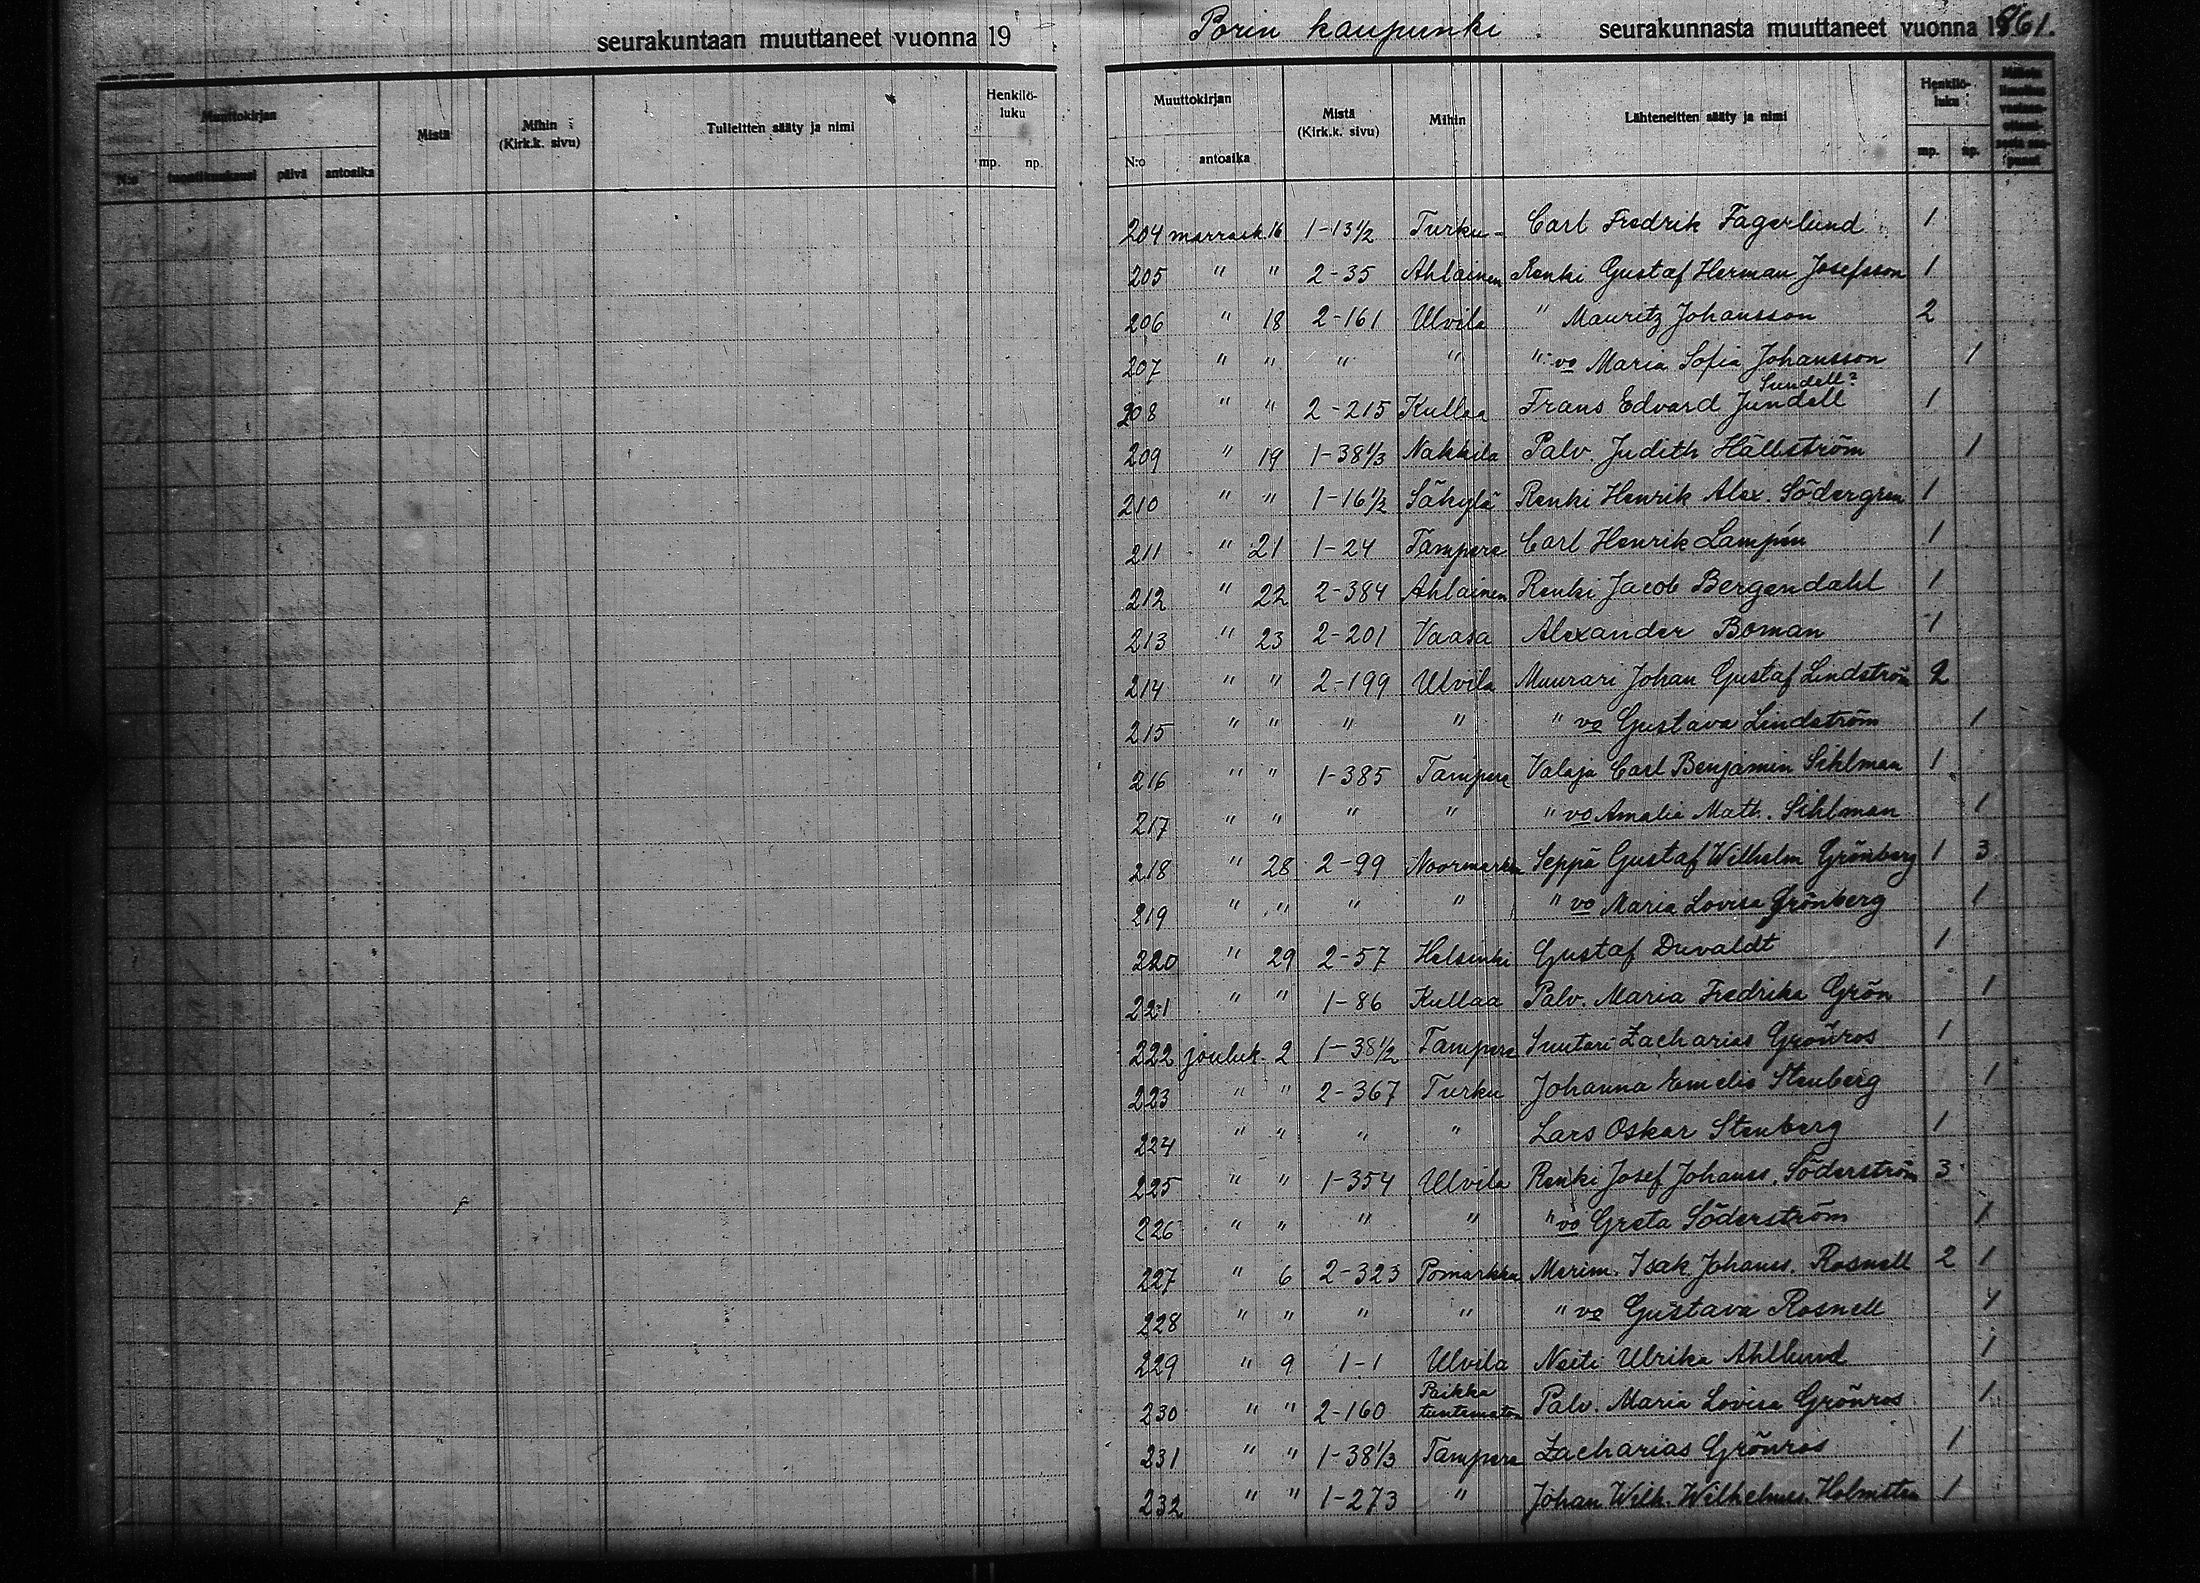 seurakuntaan muuttaneet vuonna 19
Muuttokirjan Mistä Mihin (Kirk.k. sivu) Tulleitten sääty ja nimi Henkilö-luku
N:o päivä antoaika mp. np.
Porin kaupunki seurakunnasta muuttaneet vuonna 1861.
Muuttokirjan Mistä (Kirk.k. sivu) Mihin Lähteneitten sääty ja nimi Henkilö-luku
N:o antoaika mp. np.
204 marrask. 16 1-13 1/2 Turku Carl Fredrik Fagerlund 1
205 " " 2-35 Ahlainen Renki Gustaf Herman Josefsson 1
206 " 18 2-161 Ulvila " Mauritz Johansson 2
207 " " " " " vo Maria Sofia Johansson 1
Sundell?
208 " " 2-215 Kullaa Frans Edvard Jundell 1
209 " 19 1-38 1/3 Nakkila Palv. Judith Hällström 1
210 " " 1-16 1/2 Säkylä Renki Henrik Alex. Södergren 1
211 " 21 1-24 Tampere Carl Henrik Lampén 1
212 " 22 2-384 Ahlainen Renki Jacob Bergendahl 1
213 " 23 2-201 Vaasa Alexander Boman 1
214 " " 2-199 Ulvila Muurari Johan Gustaf Lindström 2
215 " " " " " vo Gustava Lindström 1
216 " " 1-385 Tampere Valaja Carl Benjamin Sihlman 1
217 " " " " " vo Amalia Math. Sihlman 1
218 " 28 2-99 Noormarkku Seppä Gustaf Wilhelm Grönberg 1 3
219 " " " " " vo Maria Lovisa Grönberg 1
220 " 29 2-57 Helsinki Gustaf Duvaldt 1
221 " " 1-86 Kullaa Palv. Maria Fredrika Grön 1
222 jouluk. 2 1-38 1/2 Tampere Suutari Zacharias Grönros 1
223 " " 2-367 Turku Johanna Emelie Stenberg 1
224 " " " " Lars Oskar Stenberg 1
225 " " 1-354 Ulvila Renki Josef Johanss. Söderström 3
226 " " " " " vo Greta Söderström 1
227 " 6 2-323 Pomarkku Merim. Isak Johanss. Rosnell 2 1
228 " " " " " vo Gustava Rosnell 1
229 " 9 1-1 Ulvila Neiti Ulrika Ahllund 1
230 " " 2-160 Paikka tuntematon Palv. Maria Lovisa Grönros 1
231 " " 1-38 1/3 Tampere Zacharias Grönros 1
232 " " 1-273 " Johan Wilh. Wilhelmss. Holmsten 1